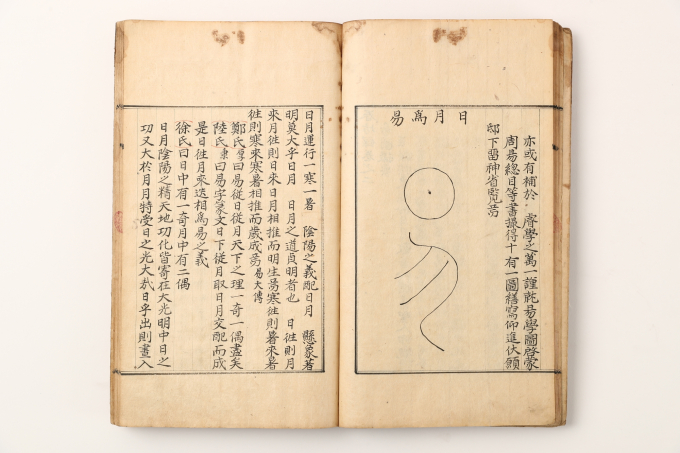 亦或有補於 睿學之萬一謹乾易學圖啓蒙
周易總目等書撮得十有一圖繕寫仰進伏願
邸下留神省覽焉
日月爲易
日月運行一寒一暑 陰陽之義配日月 懸象著
明莫大乎日月 日月之道貞明者也 日徃則月
來月徃則日來日月相推而明生焉寒徃則暑來暑
徃則寒來寒暑相推而歲成焉易大傳
鄭氏厚曰易從日從月天下之理一奇一偶盡矣
陸氏秉曰易字篆文日下從月取日月交配而成
是日徃月來迭相爲易之義
徐氏曰日中有一奇月中有二偶
日月陰陽之精天地功化皆寄在大光明中日之
功又大於月月特受日之光大哉日乎出則晝入